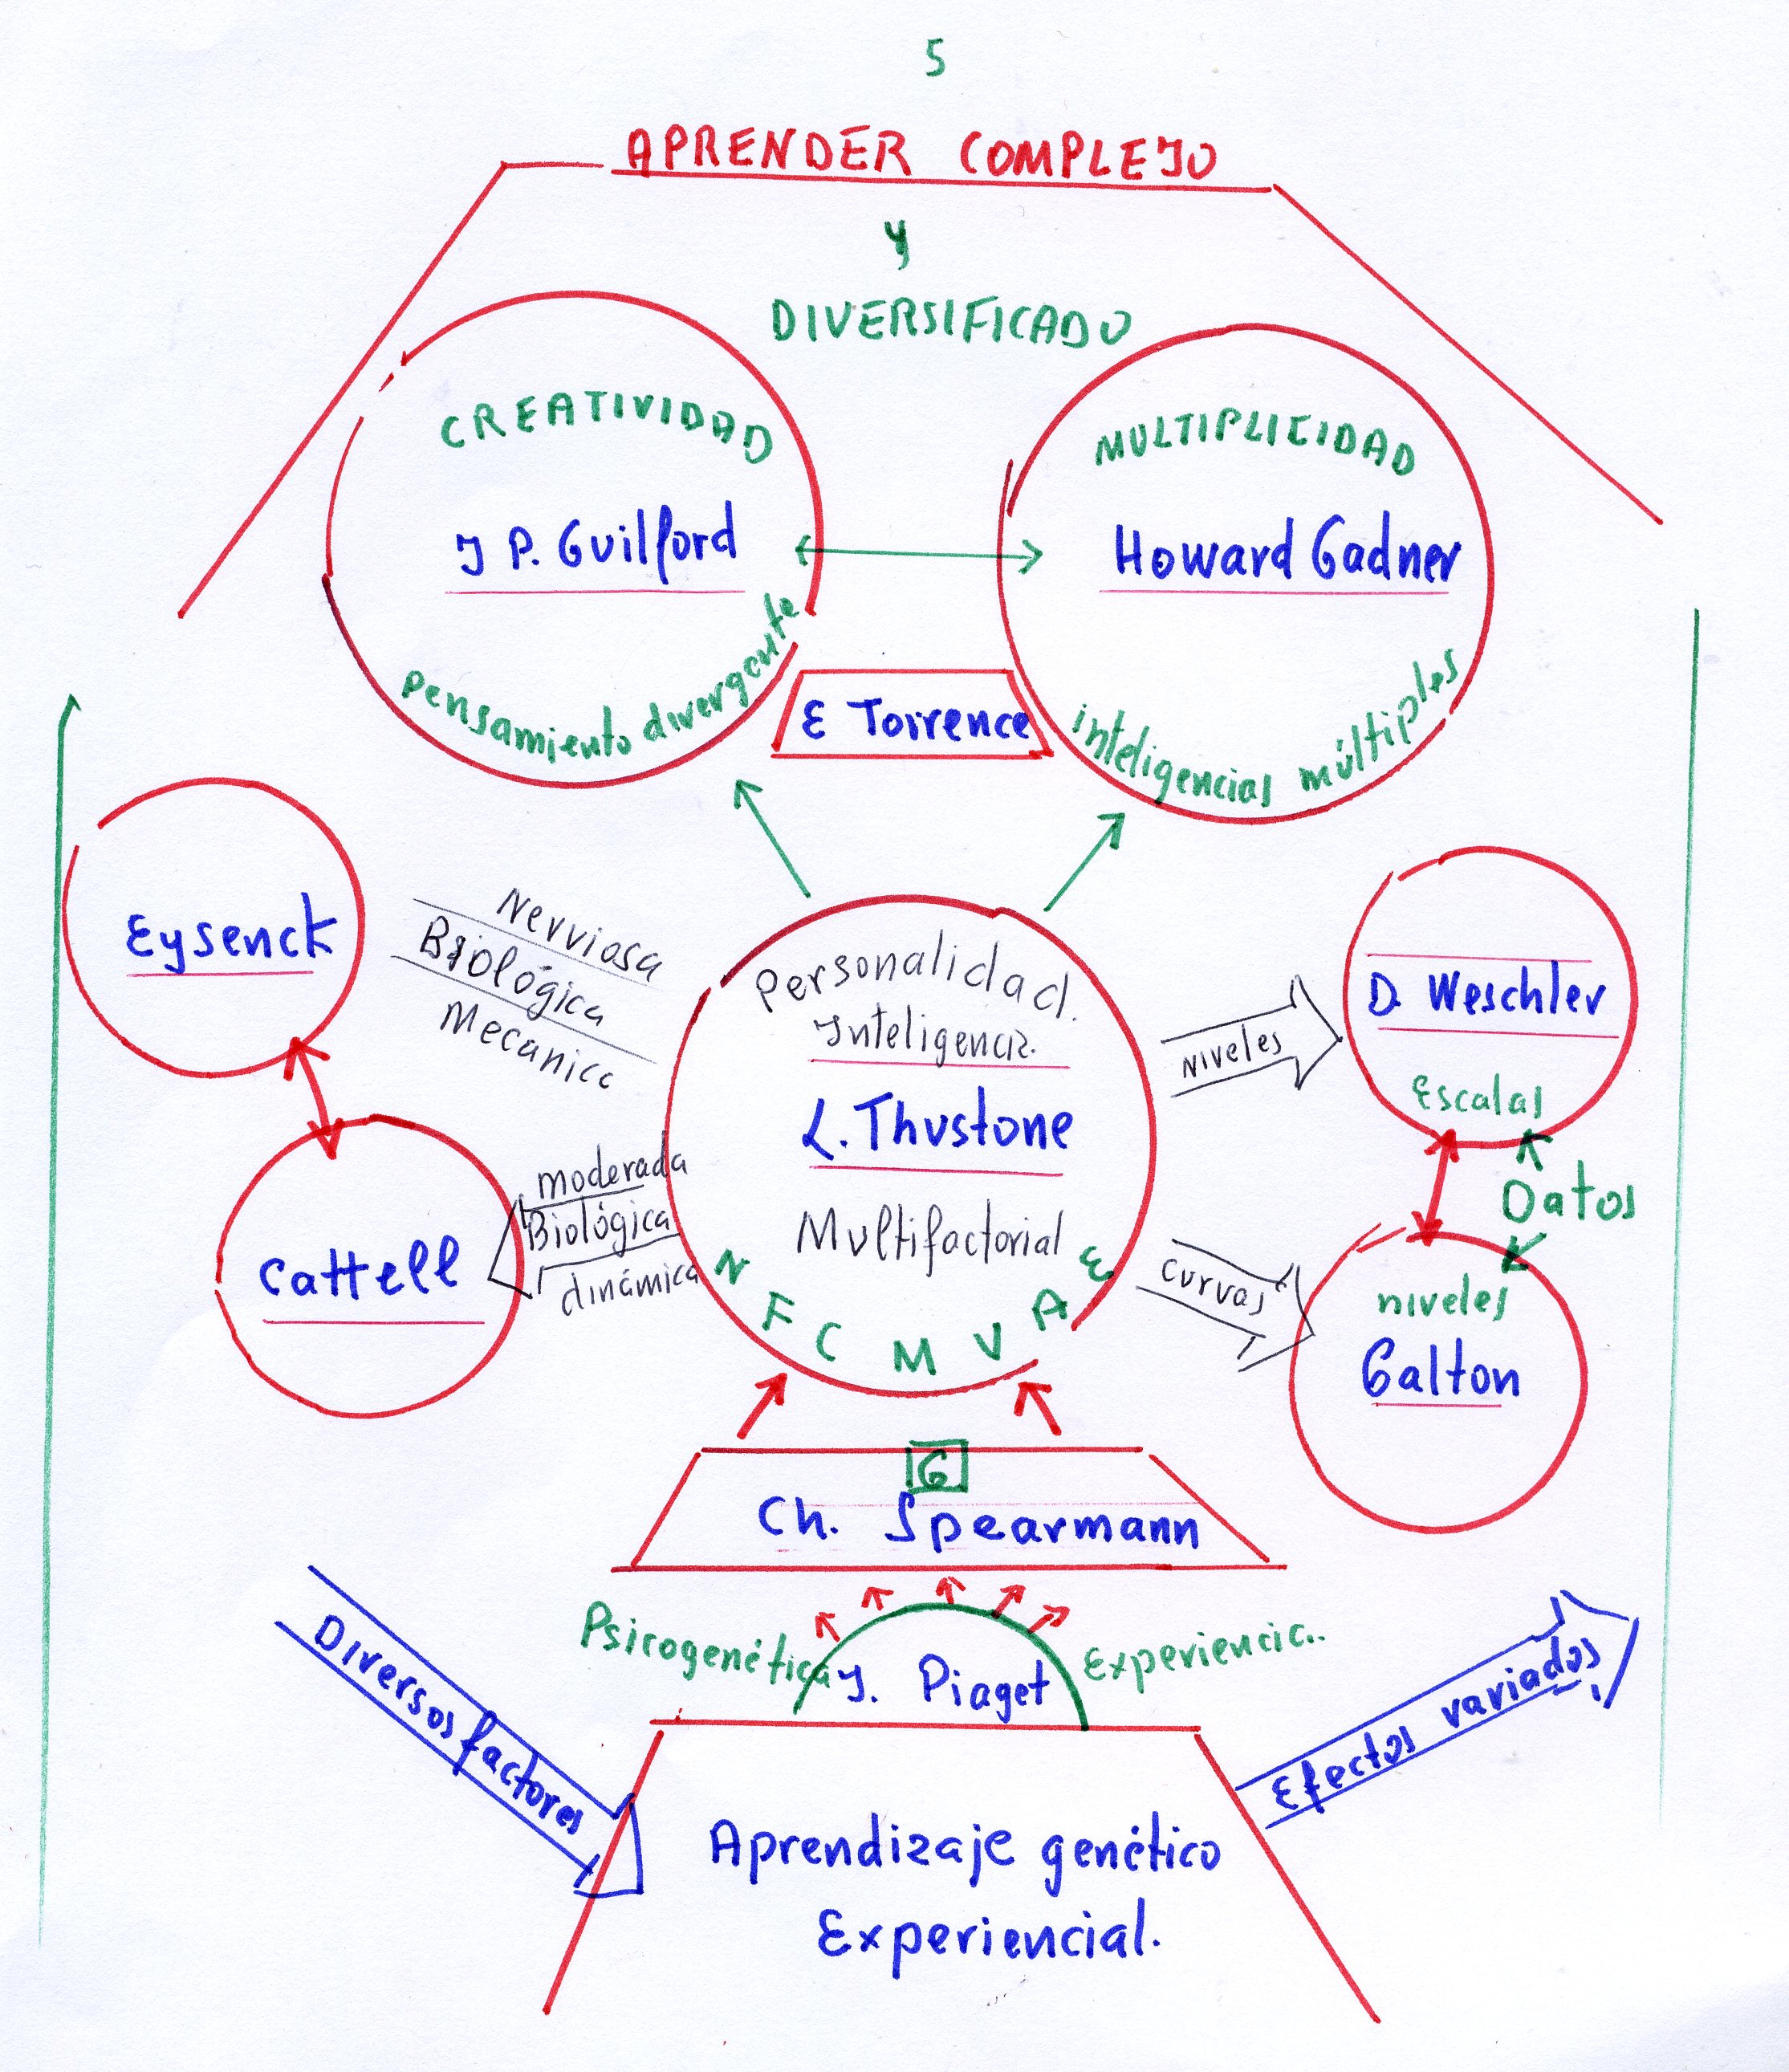 5
APRENDER COMPLEJO
y
DIVERSIFICADO
CREATIVIDAD
J P. Guilford
pensamiento divergente
MULTIPLICIDAD
Howard Gadner
inteligencias múltiples
E Torrence
Eysenck
Nerviosa
Biológica
Mecanica
Personalidad.
Inteligencia.
L. Thustone
Multifactorial
N F C M V A E
niveles
D. Weschler
Escalas
Datos
Cattell
moderada
Biológica
dinámica
curvas
niveles
Galton
G
Ch. Spearmann
Psicogenética
J. Piaget
Experiencia..
Diversos factores
Efectos variados
Aprendizaje genético
Experiencial.